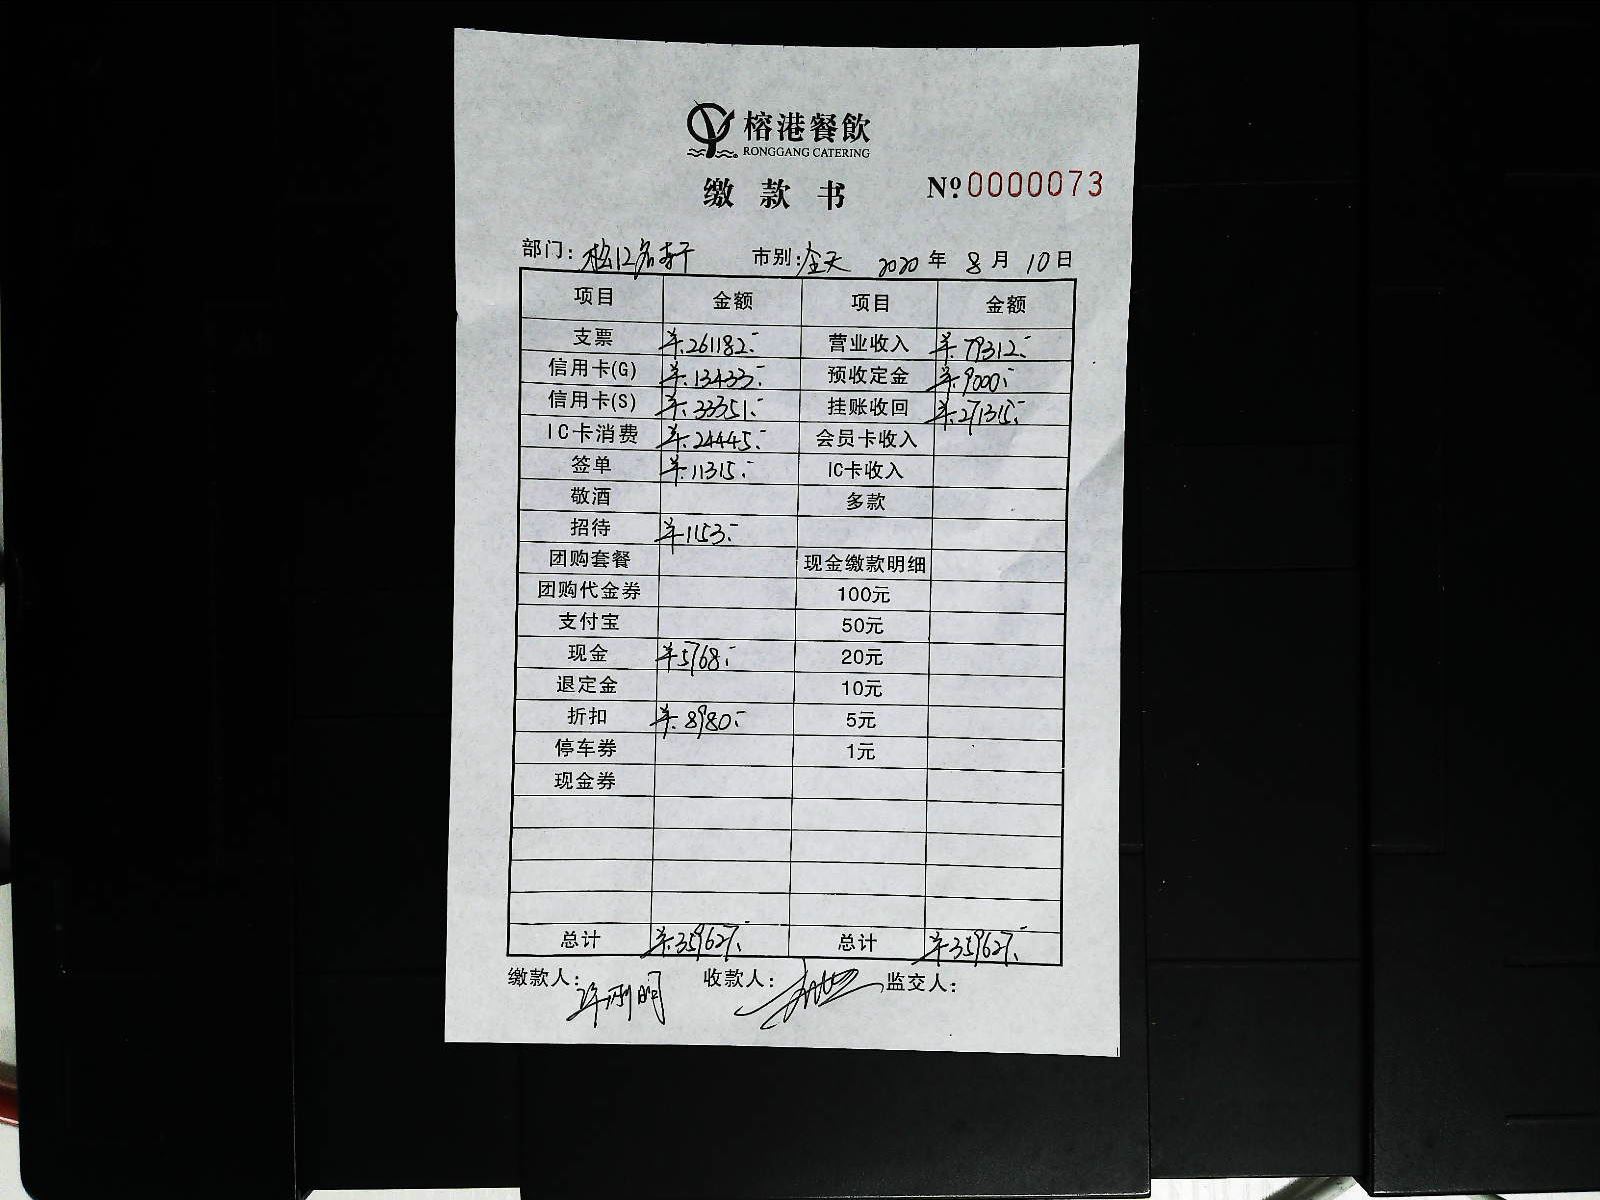 榕港餐飲
RONGGANG CATERING
缴款书 №0000073
部门: 市别:全天 2020年8月10日
项目 金额 项目 金额
支票 ¥261182.- 营业收入 ¥79312.-
信用卡(G) ¥13433.- 预收定金 ¥9000.-
信用卡(S) ¥33351.- 挂账收回 ¥271315.-
IC卡消费 ¥24445.- 会员卡收入
签单 ¥11315.- IC卡收入
敬酒 多款
招待 ¥1153.-
团购套餐 现金缴款明细
团购代金券 100元
支付宝 50元
现金 ¥5768.- 20元
退定金 10元
折扣 ¥8980.- 5元
停车券 1元
现金券
总计 ¥359627.- 总计 ¥359627.-
缴款人: 收款人: 监交人: